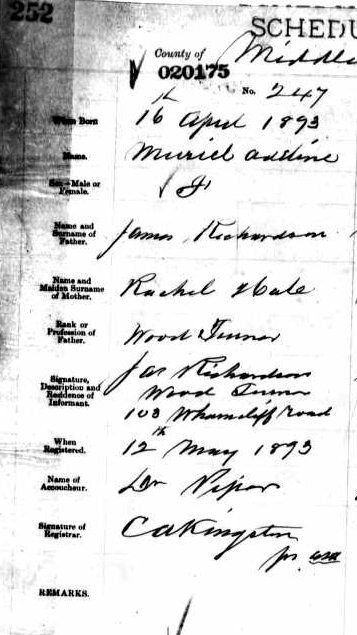 252
SCHEDU
County of Middle
020175
No. 247
When Born 16th April 1893
Name. Muriel Adeline
Sex—Male or Female. F
Name and Surname of Father. James Richardson
Name and Maiden Surname of Mother. Rachel Hale
Rank or Profession of Father. Wood Turner
Signature, Description and Residence of Informant. Jas Richardson
Wood Turner
103 Wharncliff Road
When Registered. 12th May 1893
Name of Accoucheur. Dr Piper
Signature of Registrar. C A Kingston
REMARKS.